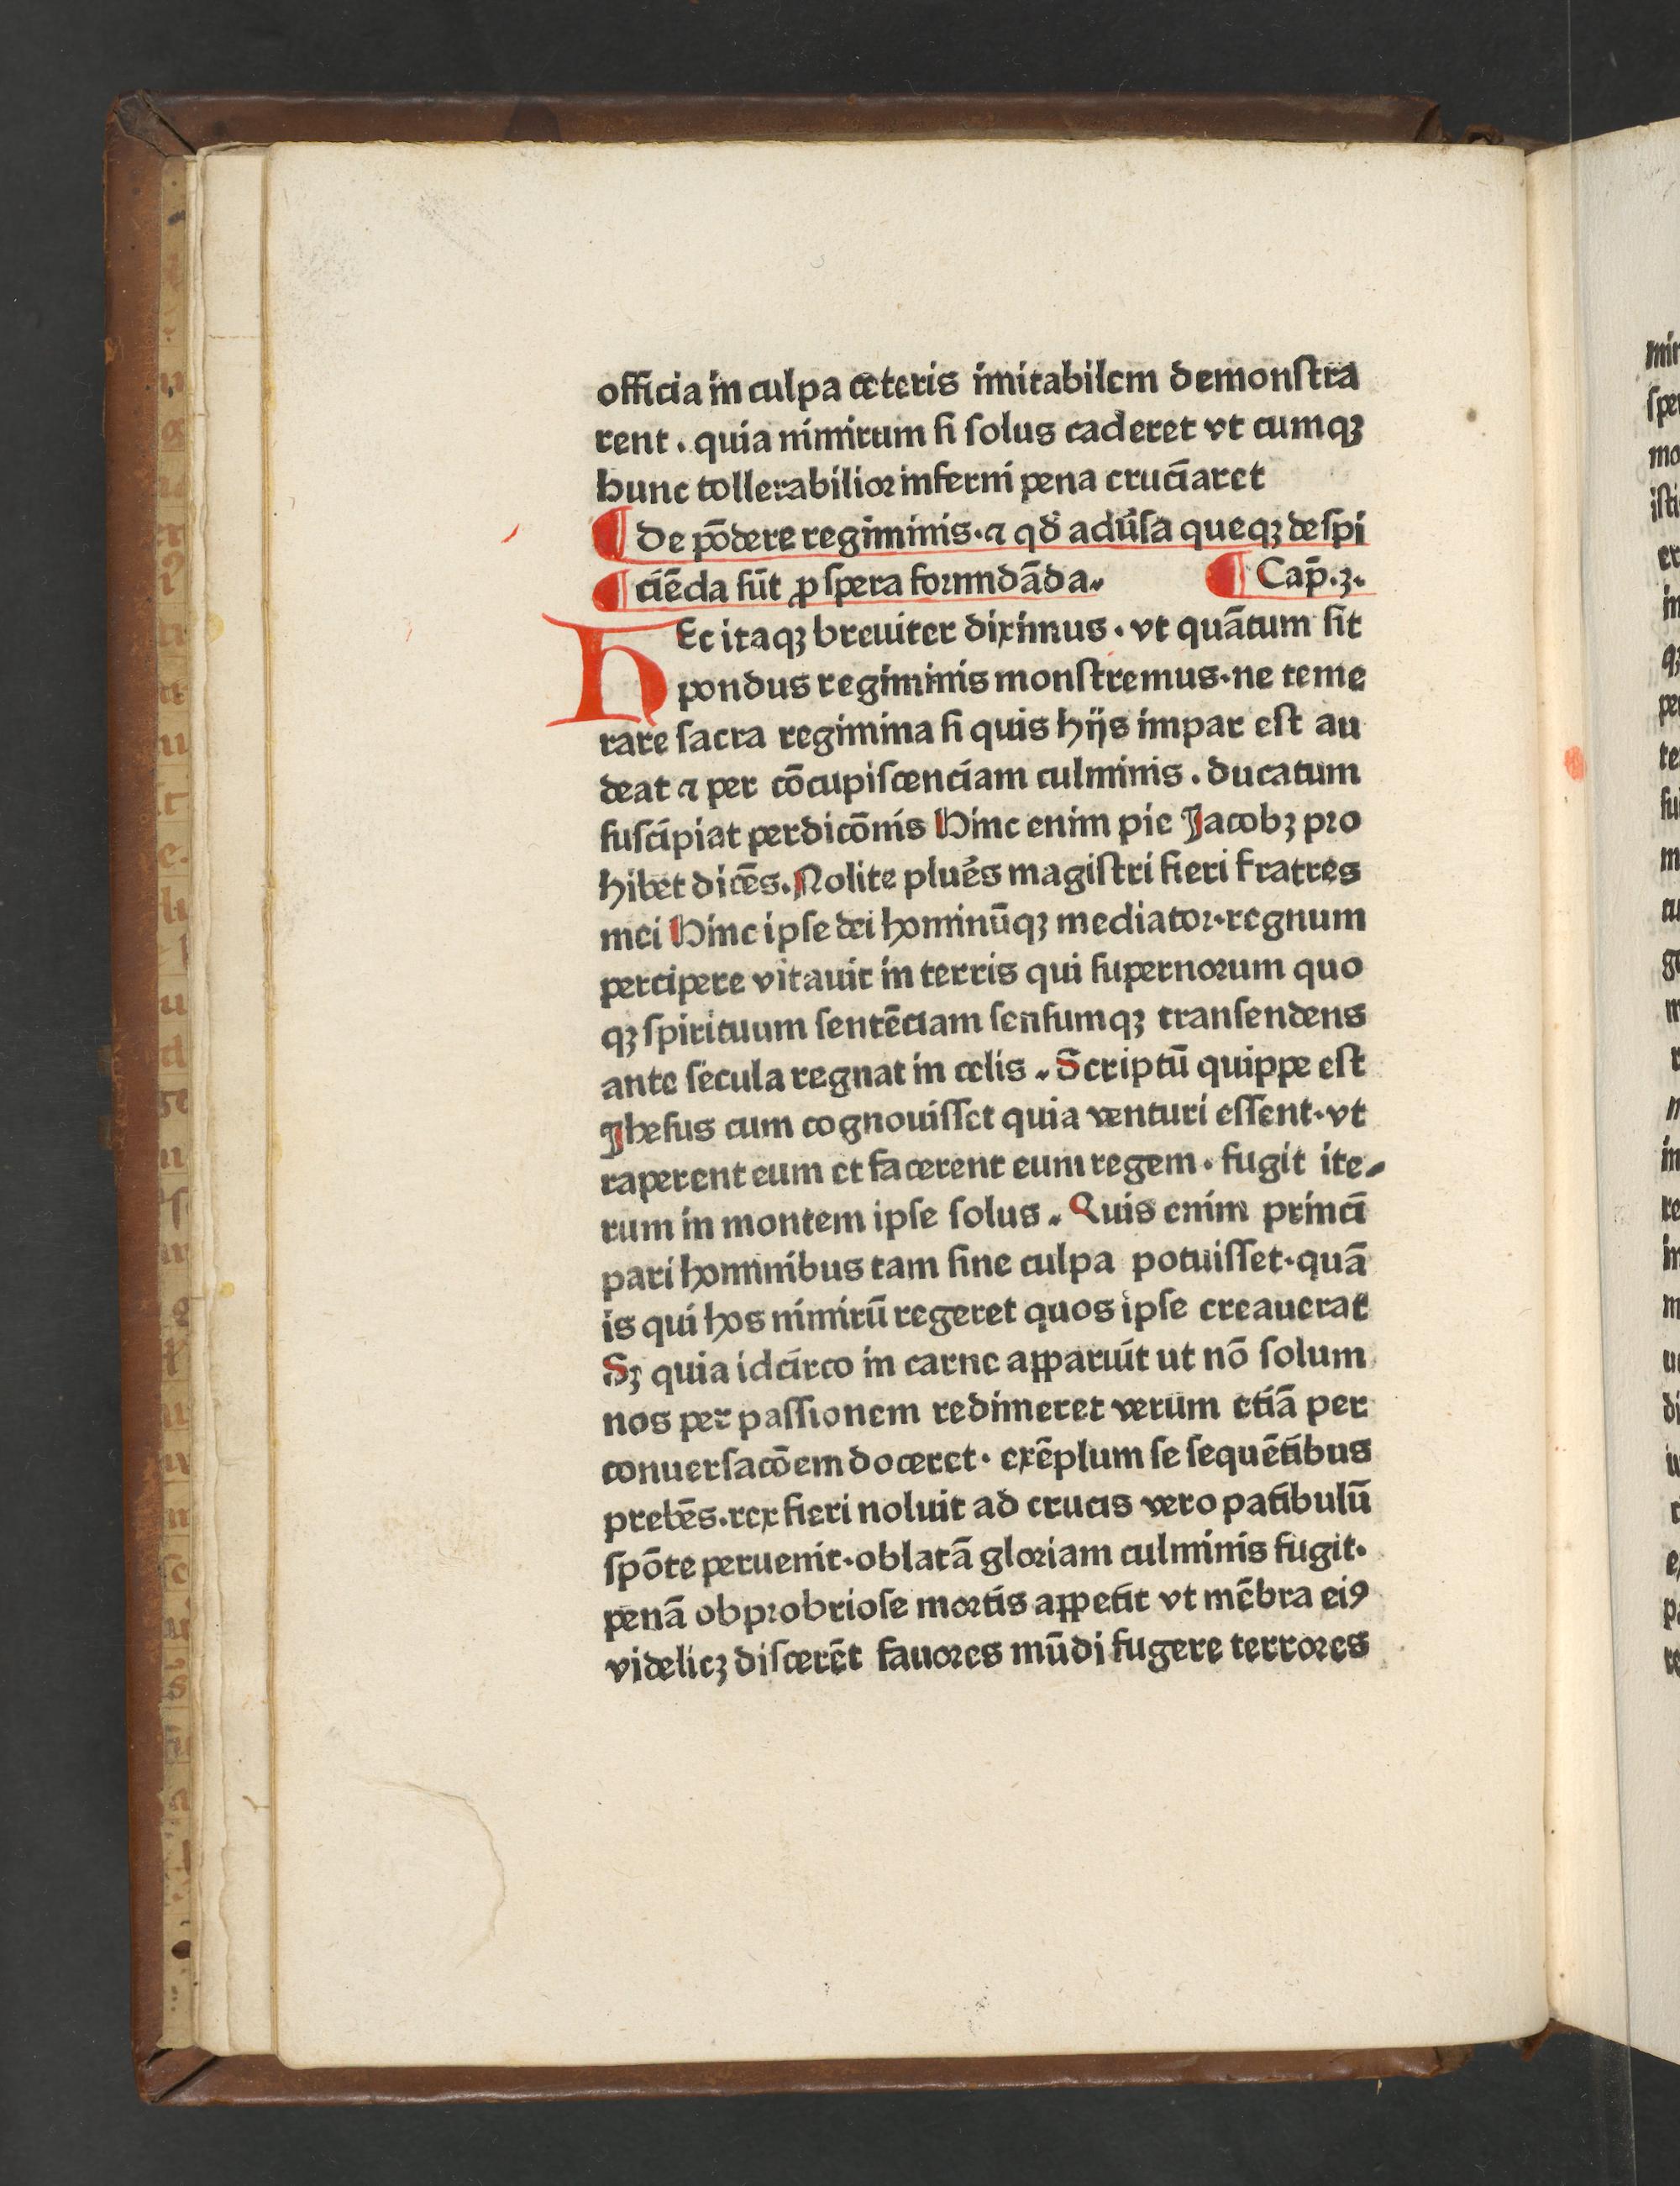 officia in culpa ceteris imitabilem demonſtra
rent . quia nimirum ſi ſolus caderet vt cumqꝫ
hunc tollerabilior inferni pena cruciaret
¶ De põdere regiminis · ⁊ qđ adũſa queqꝫ deſpi
¶ ciẽda ſũt ꝓſpera formidãda. ¶ Cap̃.3.
HEc itaqꝫ breuiter diximus · vt quãtum ſit
pondus regiminis monſtremus · ne teme
rare ſacra regimina ſi quis hijs impar eſt au
deat ⁊ per cõcupiſcenciam culminis . ducatum
ſuſcipiat perdicõnis Hinc enim pie Jacobꝫ pro
hibet dicẽs. Nolite plués magiſtri fieri fratres
mei Hinc ipſe dei hominũqꝫ mediator · regnum
percipere vitauit in terris qui ſupernorum quo
qꝫ ſpirituum ſentẽciam ſenſumqꝫ tranſendens
ante ſecula regnat in celis . Scriptũ quippe eſt
Jheſus cum cognouiſſet quia venturi eſſent · vt
raperent eum et facerent eum regem · fugit ite-
rum in montem ipſe ſolus . Quis enim princi
pari hominibus tam ſine culpa potuiſſet · quã
is qui hos nimirũ regeret quos ipſe creauerat
Sꝫ quia idcirco in carne apparuit ut nõ ſolum
nos per paſſionem redimeret verum etiã per
conuerſacõem doceret · exẽplum ſe ſequẽtibus
prebẽs. rex fieri noluit ad crucis vero patibulũ
ſpõte peruenit · oblatã gloriam culminis fugit.
penã obprobrioſe mortis appetit vt mẽbra eiꝰ
videlicꝫ diſcerẽt fauores mũdi fugere terrores